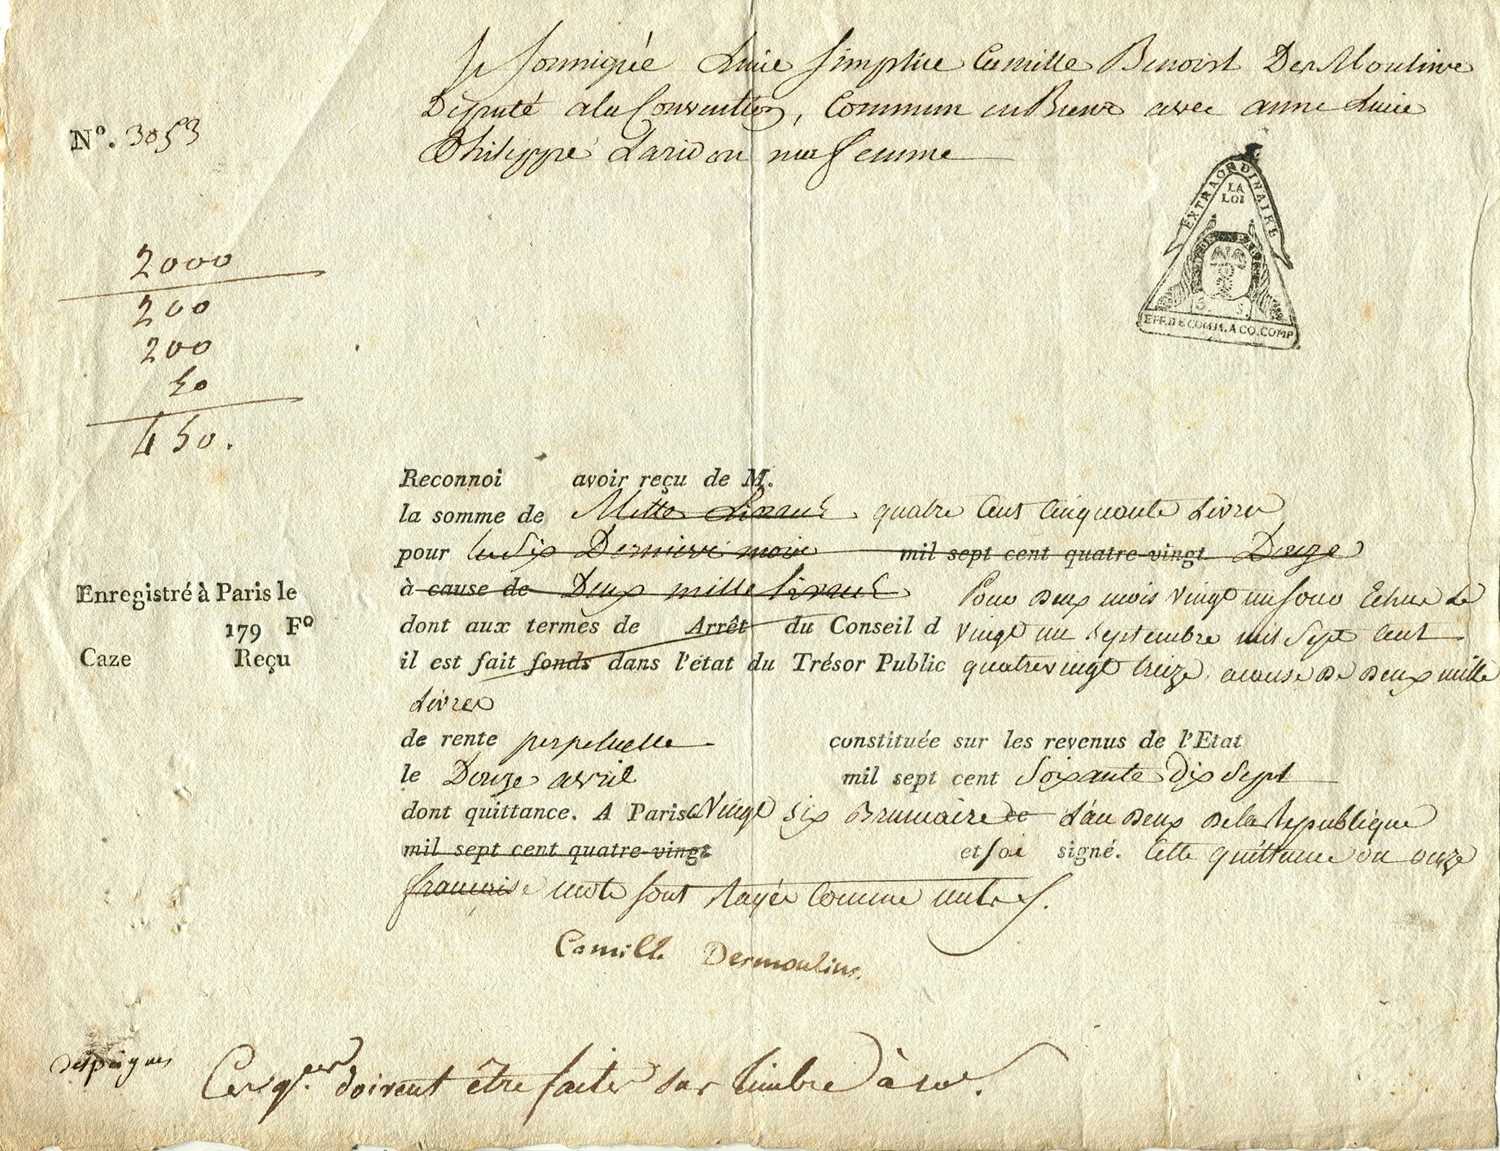 Je soussigné Lucie Simplice Camille Benoist Des Moulins
Député a la Convention, Commun en Biens avec anne Lucie
Philippe Laridon ma femme
Nº. 3053
EXTRAORDINAIRE
LA
LOI
EFF. DE COMM. A CO. COMP
2000
200
200
50
450.
Reconnoi avoir reçu de M.
la somme de Mille Livres quatre Cent Cinquante Livres
pour les Six Derniers mois mil sept cent quatre-vingt Douze
à cause de Deux mille Livres Pour deux mois vingt un jours Echus Le
dont aux termes de Arrêt du Conseil d vingt un Septembre mil Sept Cent
il est fait fonds dans l'état du Trésor Public quatrevingt treize, acause de deux mille
Livres
Enregistré à Paris le
179 Fº
Caze Reçu
de rente perpetuelle constituée sur les revenus de l'Etat
le Douze avril mil sept cent Soixante Dix Sept
dont quittance. A Paris Vingt Six Brumaire L'an Deux de la Republique
mil sept cent quatre-vingt et soi signé. Cette quittance ou onze
francaise mots sont Rayés Comme nuls
Camille Desmoulins.
Ces qces doivent être faites sur timbre à